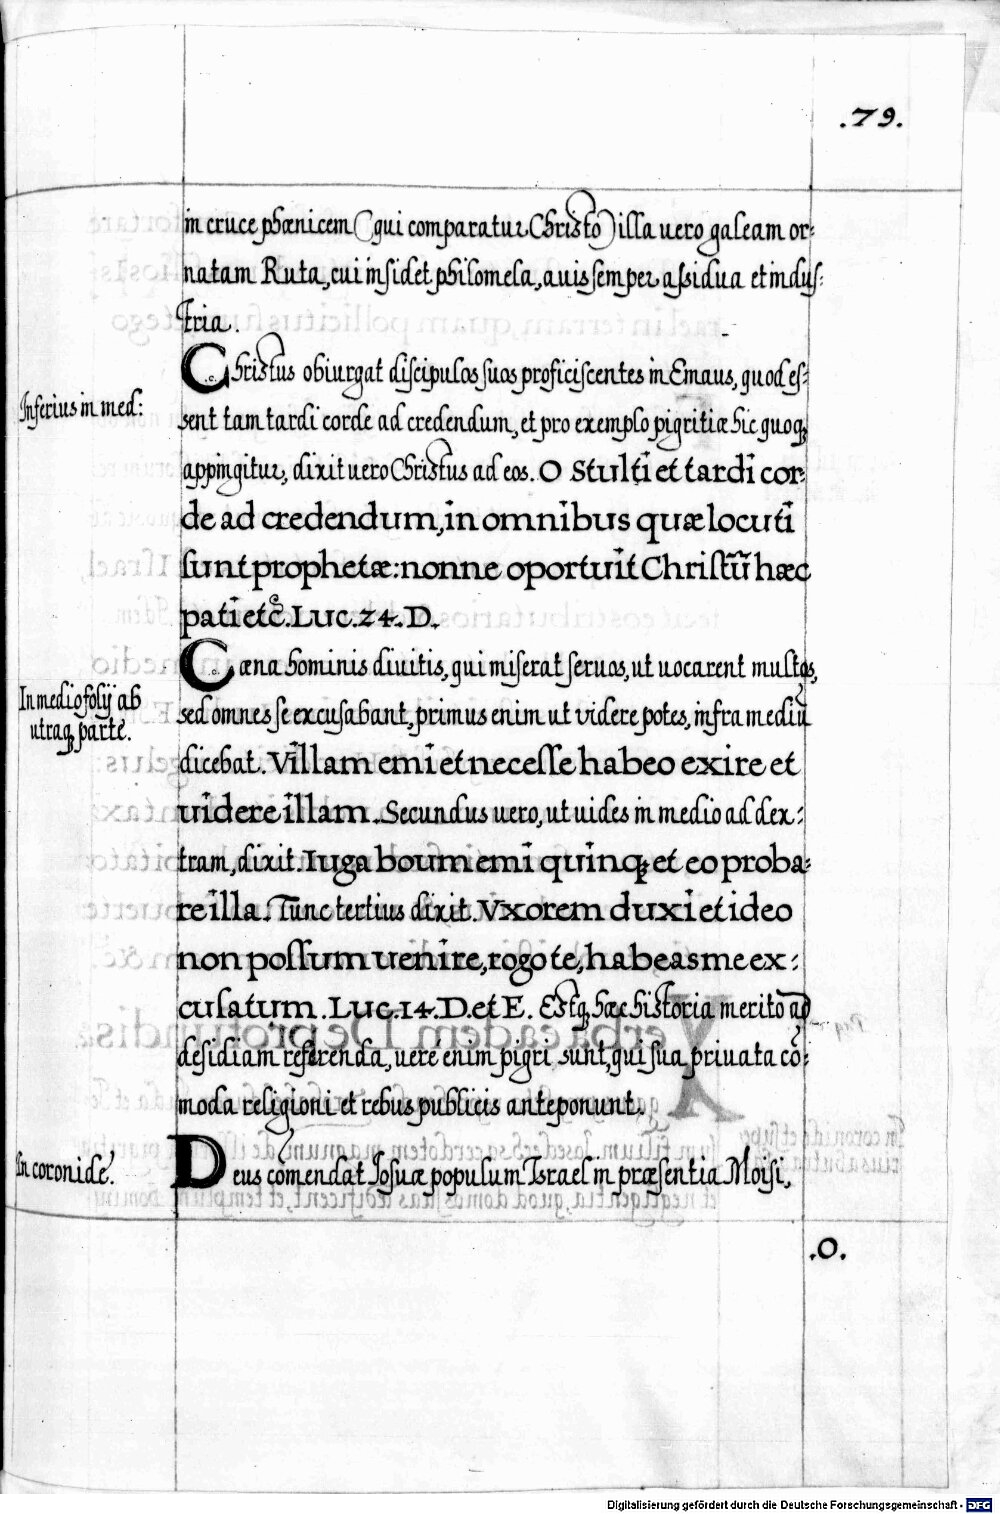 .79.
in cruce phœnicem (qui comparatur Christo) illa uero galeam or-
natam Ruta, cui insidet philomela, auis semper assidua et indus-
tria.
Christus obiurgat discipulos suos proficiscentes in Emaus, quod es-
Inferius in med:
sent tam tardi corde ad credendum, et pro exemplo pigritiæ hic quoq
appingitur, dixit uero Christus ad eos. O Stulti et tardi cor-
de ad credendum, in omnibus quæ locuti
sunt prophetæ: nonne oportuit Christū hæc
pati etc. Luc. 24. D.
Cæna hominis diuitis, qui miserat seruos, ut uocarent multos,
In medio folij ab
utraq parte.
sed omnes se excusabant, primus enim ut videre potes, infra mediū
dicebat. Villam emi et necesse habeo exire et
uidere illam. Secundus uero, ut uides in medio ad dex-
tram, dixit. Iuga boum emi quinq et eo proba-
re illa. Tunc tertius dixit. Vxorem duxi et ideo
non possum uenire, rogo te, habeas me ex-
cusatum. Luc. 14. D. et E. Estq hæc historia merito ad
desidiam referenda, uere enim pigri sunt, qui sua priuata cō-
moda religioni et rebus publicis anteponunt.
In coronide.
Deus cōmendat Iosuæ populum Israel in præsentia Moisi,
.O.
Digitalisierung gefördert durch die Deutsche Forschungsgemeinschaft - DFG